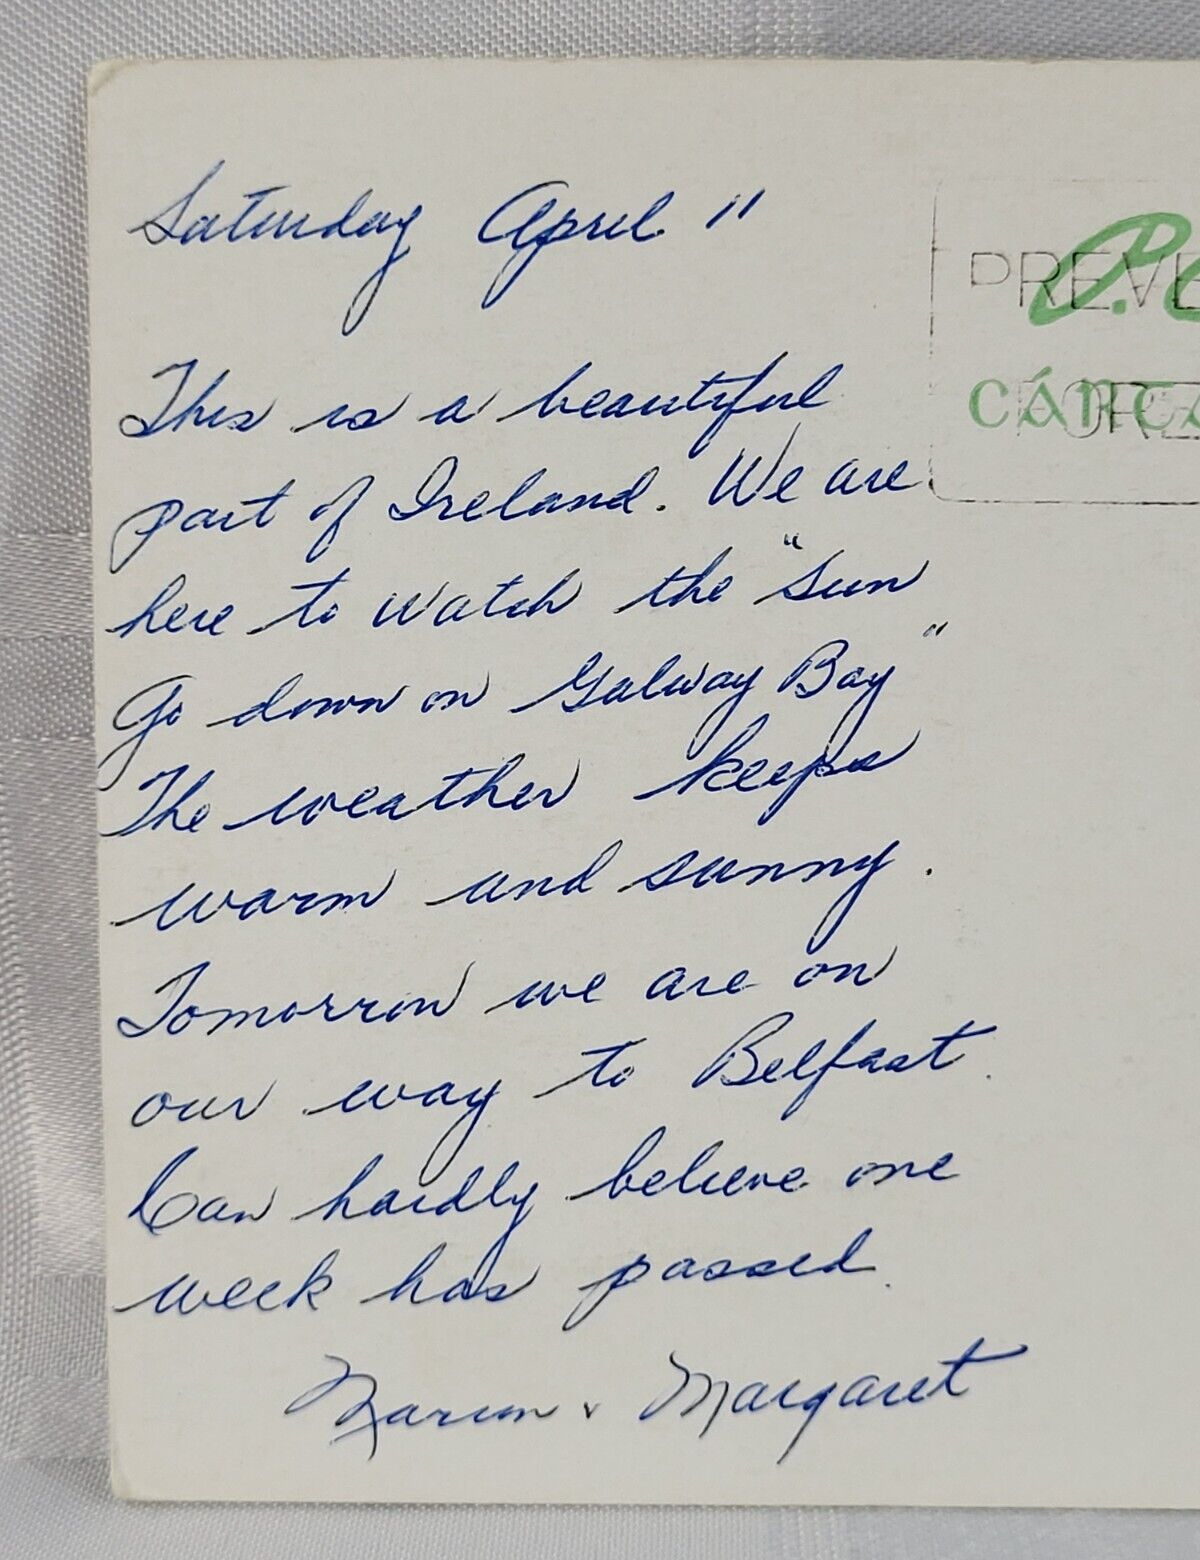 Saturday April 11
This is a beautiful
part of Ireland. We are
here to watch the "Sun
Go down on Galway Bay"
The weather keeps
warm and sunny.
Tomorrow we are on
our way to Belfast.
Can hardly believe one
week has passed.
Marion & Margaret
PREVE
FORE
P.
CÁRTA